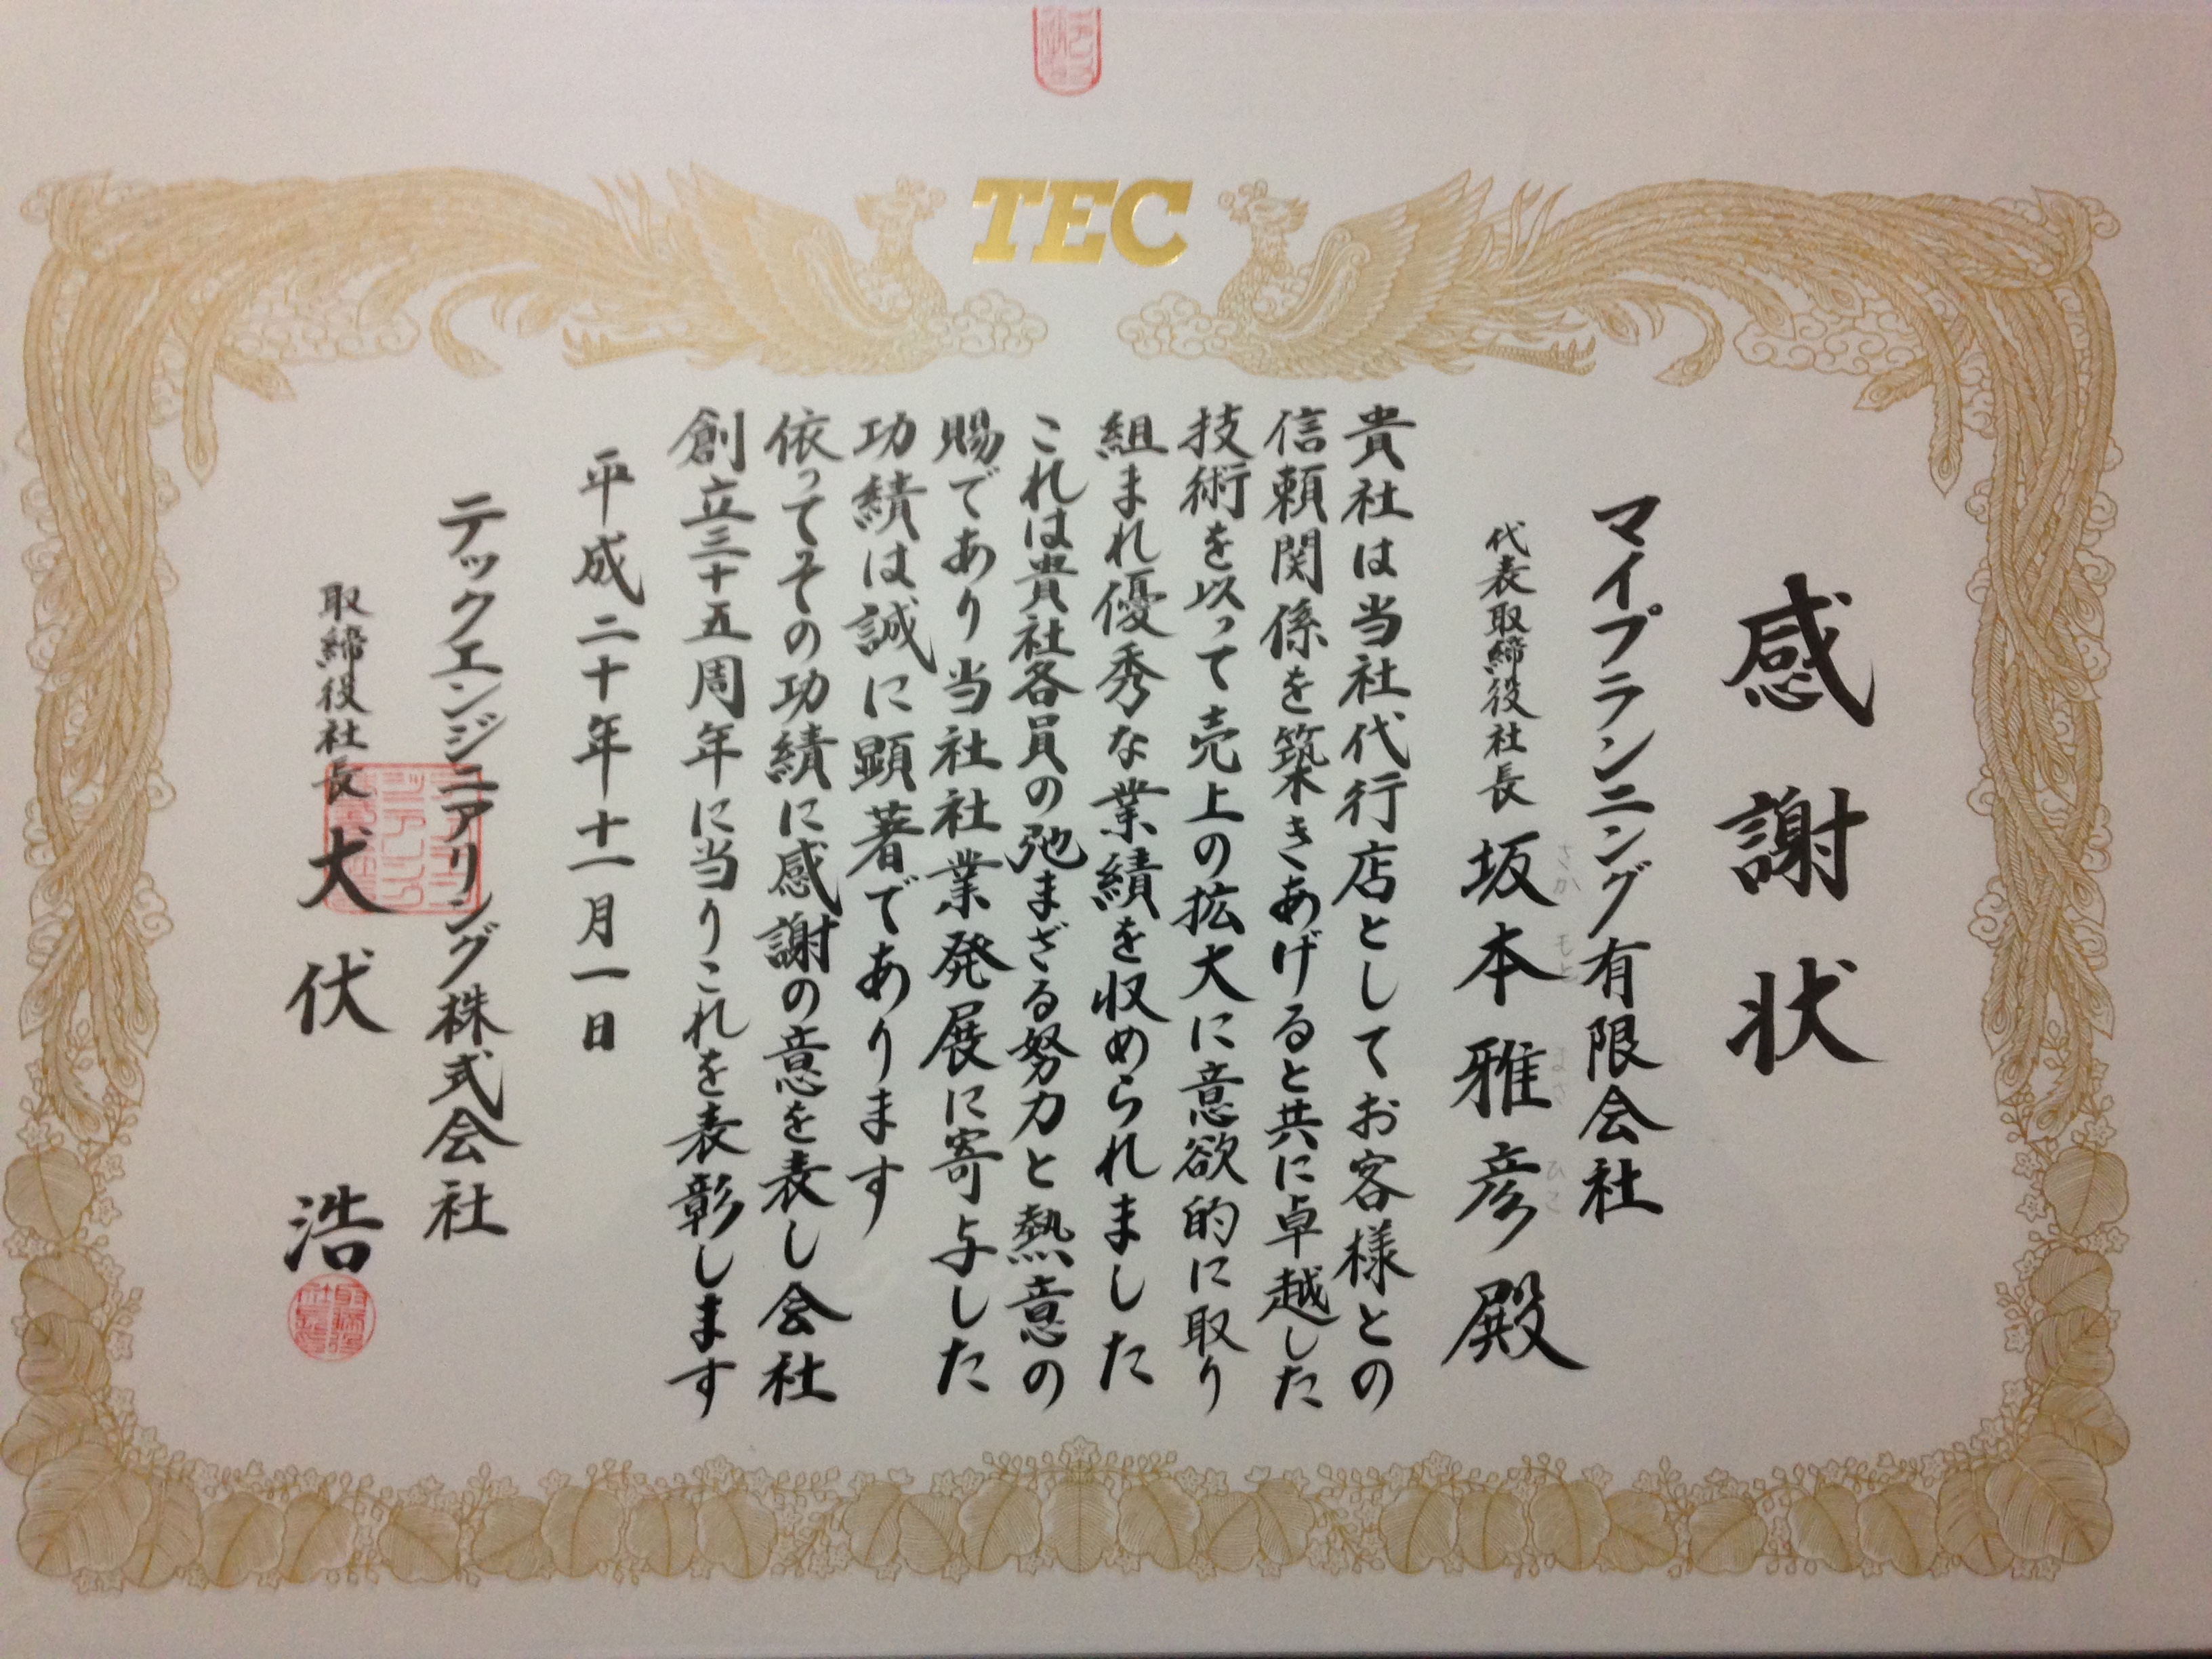 TEC
感謝状
マイプランニング有限会社
代表取締役社長 坂本雅彦殿
貴社は当社代行店としてお客様との
信頼関係を築きあげると共に卓越した
技術を以って売上の拡大に意欲的に取り
組まれ優秀な業績を収められました
これは貴社各員の弛まざる努力と熱意の
賜であり当社社業発展に寄与した
功績は誠に顕著であります
依ってその功績に感謝の意を表し会社
創立三十五周年に当りこれを表彰します
平成二十年十一月一日
テックエンジニアリング株式会社
取締役社長 犬伏 浩